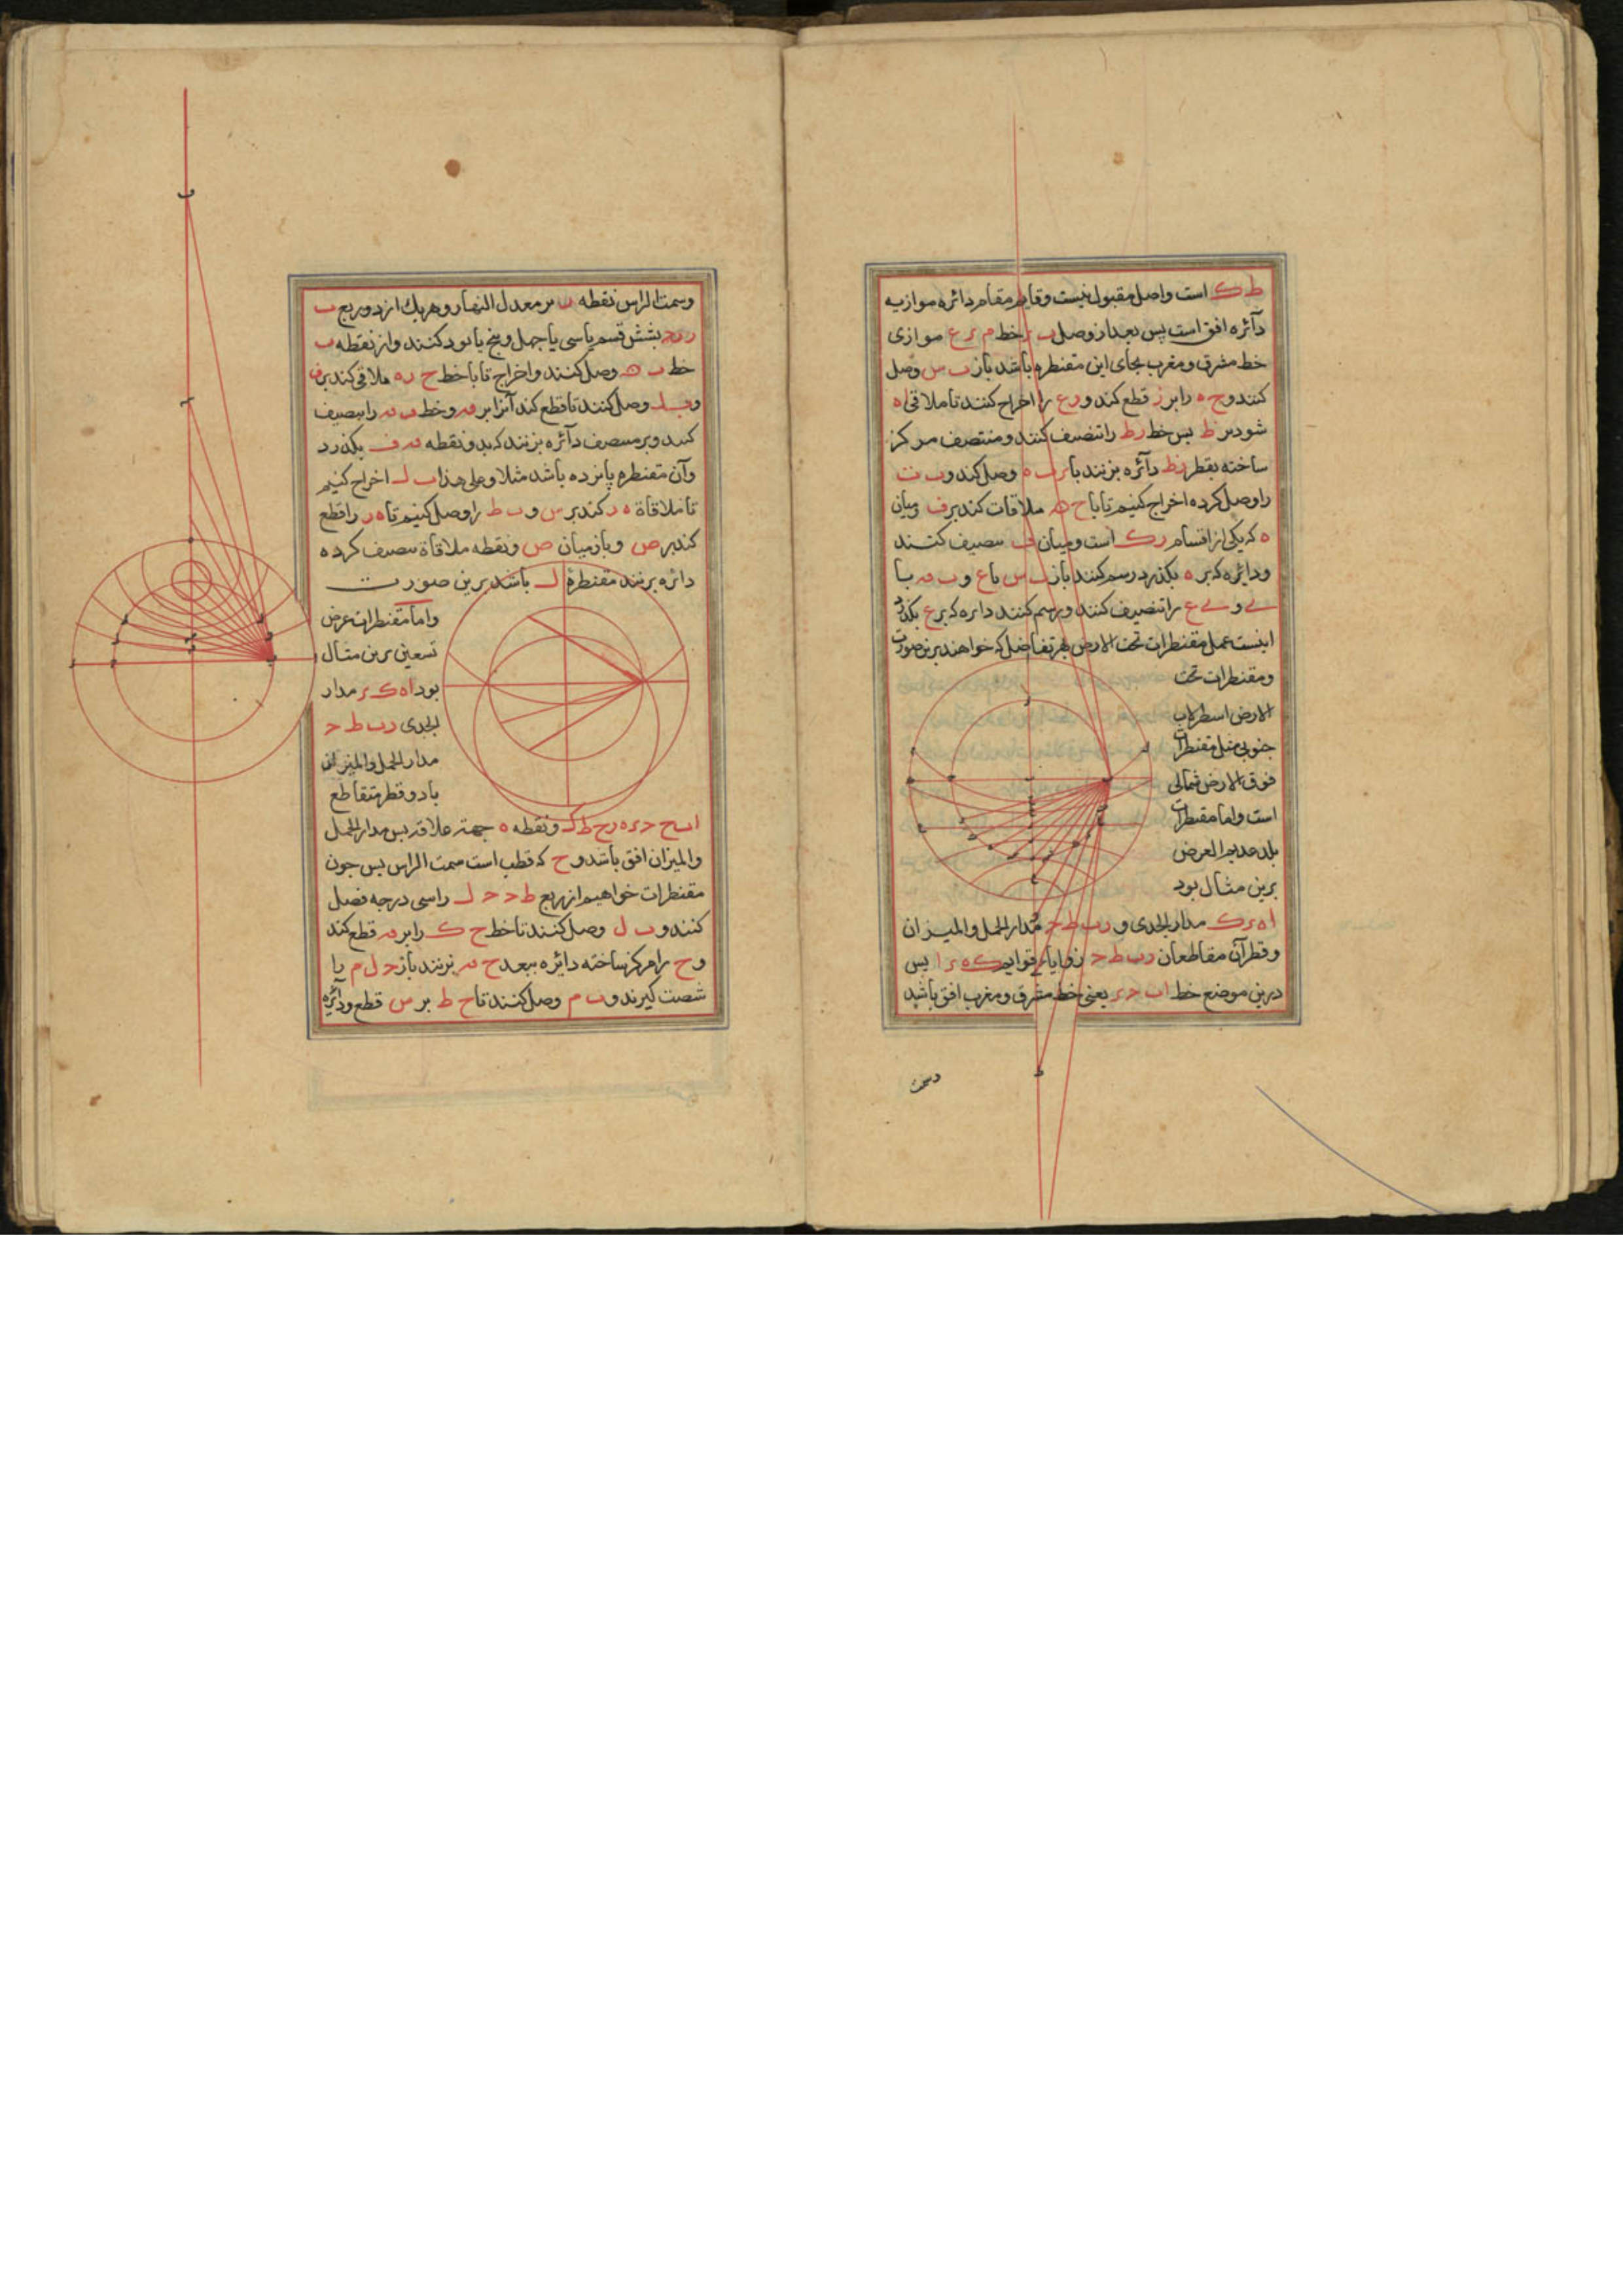 ط ک است واصل مقبول نیست وقایم مقام دائره موازیه
دآئره افق است پس بعد از وصل ب ر خط م ر ع موازی
خط مشرق ومغرب بجای این مقنطره باشد باز ب س وصل
کنند و ح ه را بر ز قطع کند و ر ع را اخراج کنند تا ملاقی اه
شود بر ط پس خط ر ط را تنصیف کنند ومنتصف مرکز
ساخته بقطر ر ط دآئره بزنند باز ب ه وصل کند و ب ت
را وصل کرده اخراج کنیم تا با ح ه ملاقات کند بر ف ومیان
ه که یکی از اقسام ر ک است ومیان ف تنصیف کنند
ودایره که بر ه بکذرد رسم کنند باز ب س با ع و ب م با
را تنصیف کنند ورسم کنند دایره که بر ع بکذرد
اینست عمل مقنطرات تحت الارض بهر تفاضل که خواهند برین صورت
ومقنطرات تحت
الارض اسطرلاب
جنوبی مثل مقنطرات
فوق الارض شمالی
است واما مقنطرات
بلد عدیم العرض
برین مثال بود
ا ه ر ک مدار الجدی و د ب ط ح مدار الحمل والمیزان
وقطر آن متقاطعان د ب ط ح زوایا بر قوایم ک ه ر ا پس
درین موضع خط ا ب ح ر یعنی خط مشرق ومغرب افق باشد
وسمت
وسمت الراس نقطه ب بر معدل النهار وهر یک از دو ربع ب
بشش قسم یا سی یا چهل وپنج یا نود کنند واز نقطه ب
خط ب ه وصل کنند واخراج تا با خط ح ر ه ملاقی کند بر ف
وصل کنند تا قطع کند آنرا بر م وخط ب م را تنصیف
کنند وبر منتصف دآئره بزنند که بدو نقطه م ف بکذرد
وآن مقنطره پانزده باشد مثلا وعلی هذا ب ل اخراج کنیم
تا ملاقاة ه ر کند بر س و ب ط را وصل کنیم تا ه ر را قطع
کند بر ص وباز میان ص ونقطه ملاقاة تنصیف کرده
دائره بزنند مقنطرۀ ل باشد برین صورت
واما مقنطرات عرض
تسعین برین مثال
بود ا ه ک ر مدار
الجدی د ب ط ح
مدار الحمل والمیزان
با دو قطر متقاطع
ا ب ح ر ه ر ح ط ک ونقطه ه جهة علاقه پس مدار الحمل
والمیزان افق باشد و ح که قطب است سمت الراس پس چون
مقنطرات خواهیم از ربع ط ح ل را سی درجه فصل
کنند و ب ل وصل کنند تا خط ح ک را بر م قطع کند
و ح را مرکز ساخته دائره ببعد ح م بزنند باز ح ل م یا
شصت کیرند و ب م وصل کنند تا ح ط بر س قطع ودائره